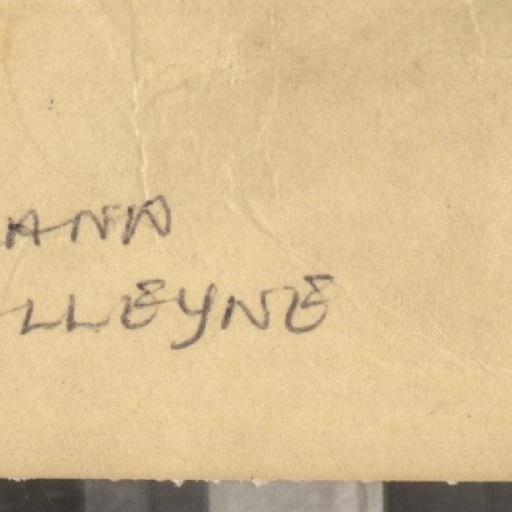 ANNA
LLEYNE